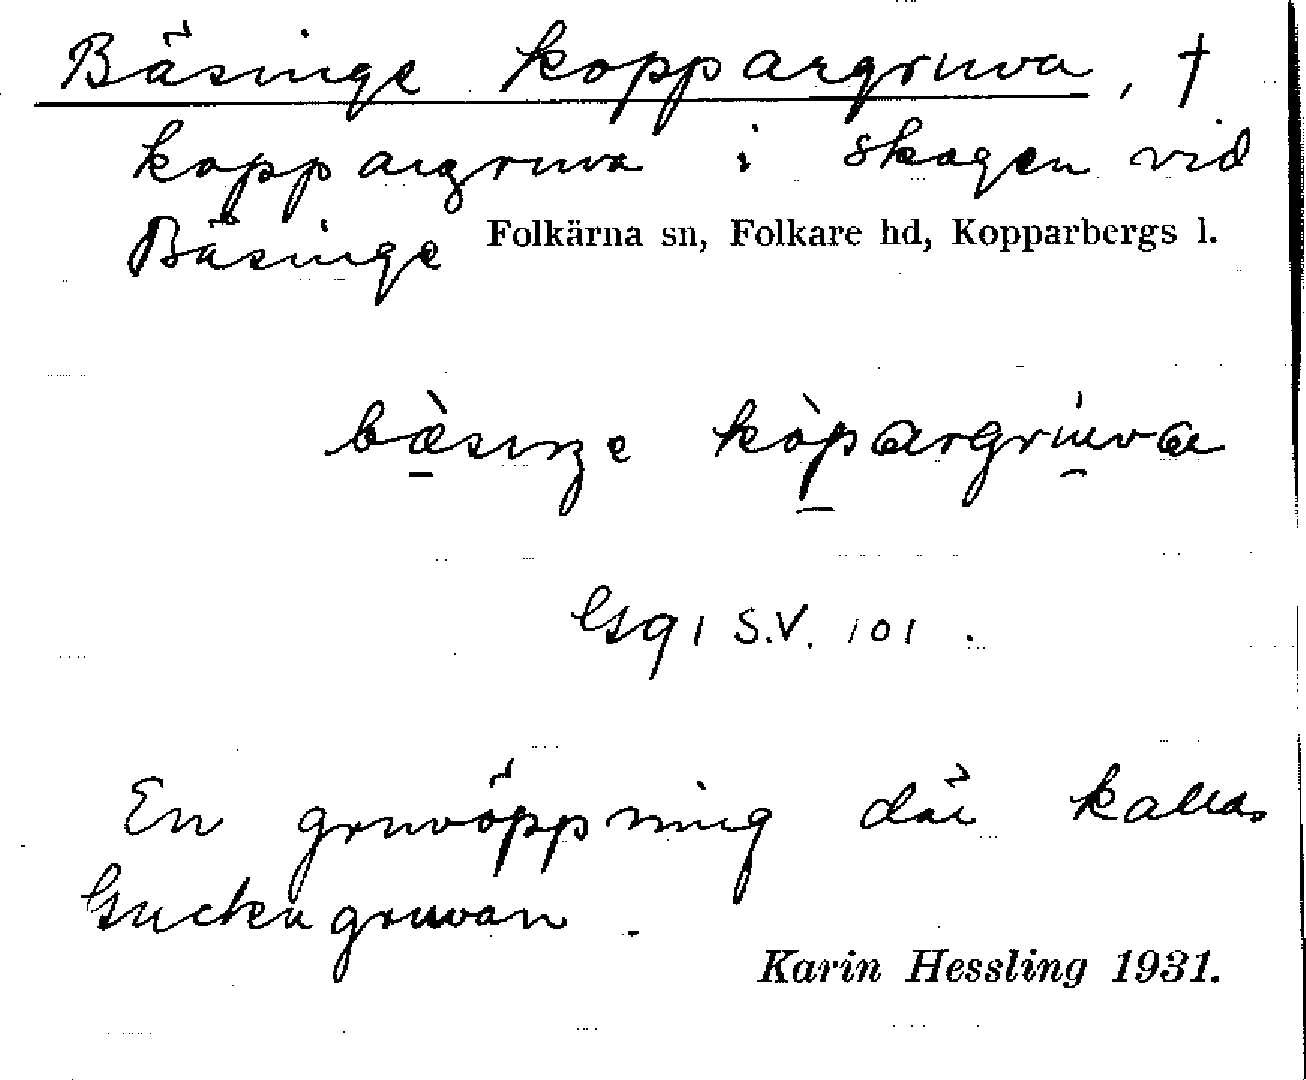 Bäsinge koppargruva, †
koppargruva i skogen vid
Bäsinge Folkärna sn, Folkare hd, Kopparbergs l.
bæ̀sıŋe kòpargruva
Gsq, S.V. 101.
En gruvöppning där kallas
Guckugruvan.
Karin Hessling 1931.